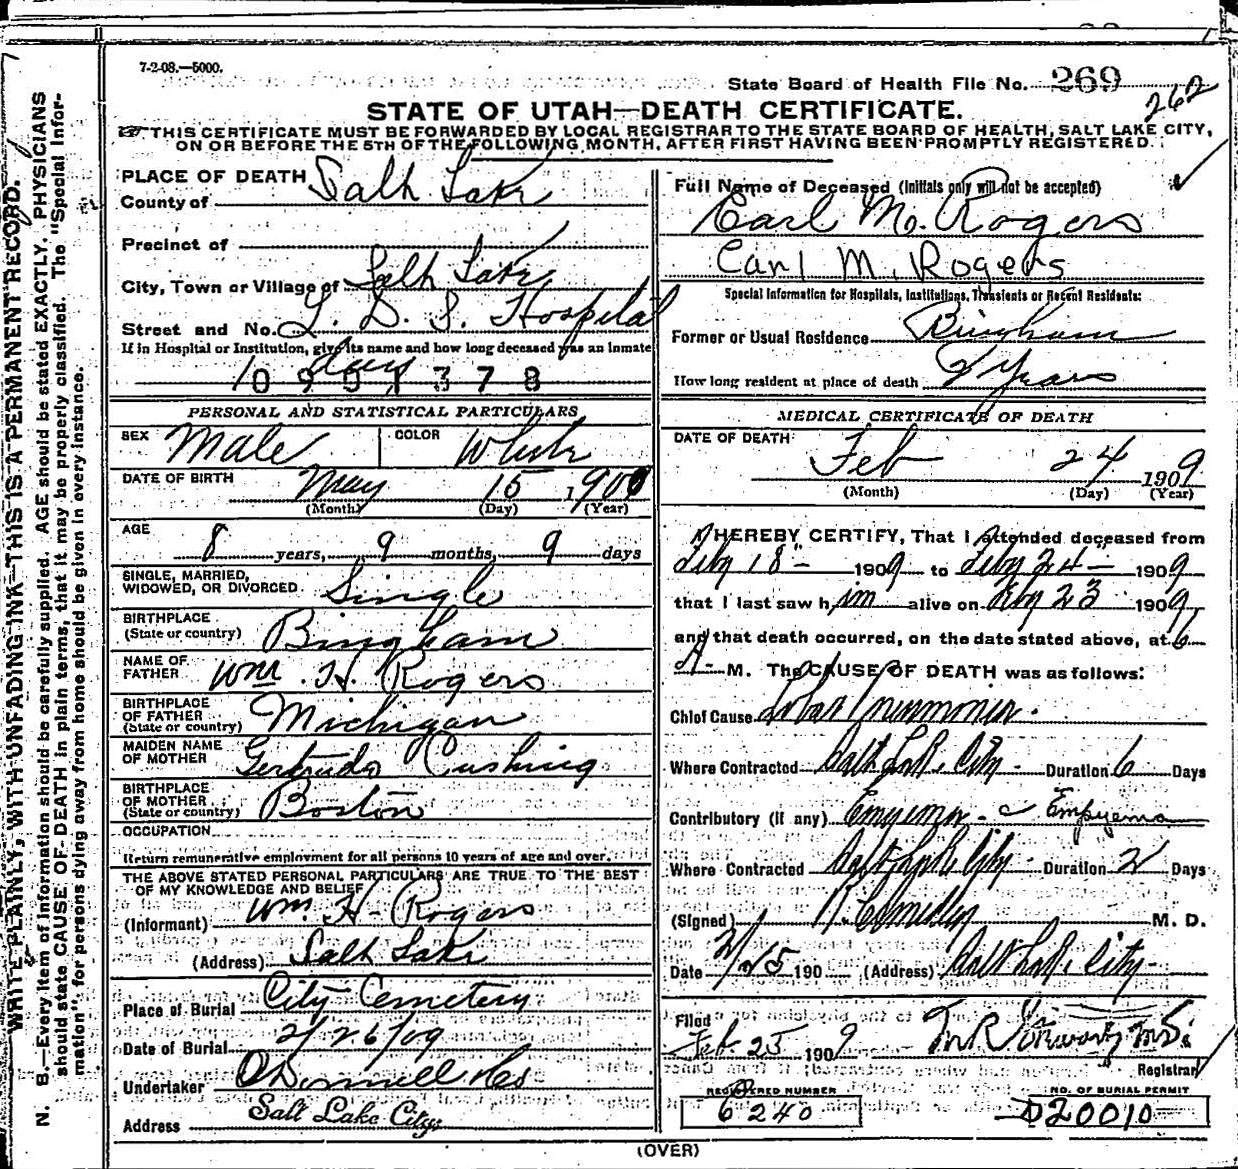 7-2-08.—5000.
State Board of Health File No. 269
262
STATE OF UTAH—DEATH CERTIFICATE.
THIS CERTIFICATE MUST BE FORWARDED BY LOCAL REGISTRAR TO THE STATE BOARD OF HEALTH, SALT LAKE CITY,
ON OR BEFORE THE 5TH OF THE FOLLOWING MONTH, AFTER FIRST HAVING BEEN PROMPTLY REGISTERED.
WRITE PLAINLY, WITH UNFADING INK—THIS IS A PERMANENT RECORD.
N. B.—Every item of information should be carefully supplied. AGE should be stated EXACTLY. PHYSICIANS
should state CAUSE OF DEATH in plain terms, that it may be properly classified. The "Special Infor-
mation" for persons dying away from home should be given in every instance.
PLACE OF DEATH
County of Salt Lake
Precinct of
City, Town or Village of Salt Lake
Street and No. L. D. S. Hospital
If in Hospital or Institution, give its name and how long deceased was an inmate
10 days
0901378
PERSONAL AND STATISTICAL PARTICULARS
SEX Male COLOR White
DATE OF BIRTH May 15 1900
(Month) (Day) (Year)
AGE
8 years, 9 months, 9 days
SINGLE, MARRIED,
WIDOWED, OR DIVORCED Single
BIRTHPLACE
(State or country) Bingham
NAME OF
FATHER Wm. H. Rogers
BIRTHPLACE
OF FATHER
(State or country) Michigan
MAIDEN NAME
OF MOTHER Gertrude Cushing
BIRTHPLACE
OF MOTHER
(State or country) Boston
OCCUPATION
Return remunerative employment for all persons 10 years of age and over.
THE ABOVE STATED PERSONAL PARTICULARS ARE TRUE TO THE BEST
OF MY KNOWLEDGE AND BELIEF
(Informant) Wm. H. Rogers
(Address) Salt Lake
Place of Burial City Cemetery
Date of Burial 2/26/09
Undertaker O'Donnell &Co
Address Salt Lake City
Full Name of Deceased (Initials only will not be accepted)
Earl M. Rogers
Earl M. Rogers
Special Information for Hospitals, Institutions, Transients or Recent Residents:
Former or Usual Residence Bingham
How long resident at place of death 2 Years
MEDICAL CERTIFICATE OF DEATH
DATE OF DEATH
Feb 24 1909
(Month) (Day) (Year)
I HEREBY CERTIFY, That I attended deceased from
Feby 18 1909 to Feby 24 1909
that I last saw him alive on Feby 23 1909,
and that death occurred, on the date stated above, at 6
A. M. The CAUSE OF DEATH was as follows:
Chief Cause Lobar Pneumonia.
Where Contracted Salt Lake City Duration 6 Days
Contributory (if any) Empyema Empyema
Where Contracted Salt Lake City Duration 2 Days
(Signed) M. D.
Date 2/25 190 (Address) Salt Lake City
Filed
Feb. 25 1909
Registrar
REGISTERED NUMBER
6240
NO. OF BURIAL PERMIT
D20010
(OVER)